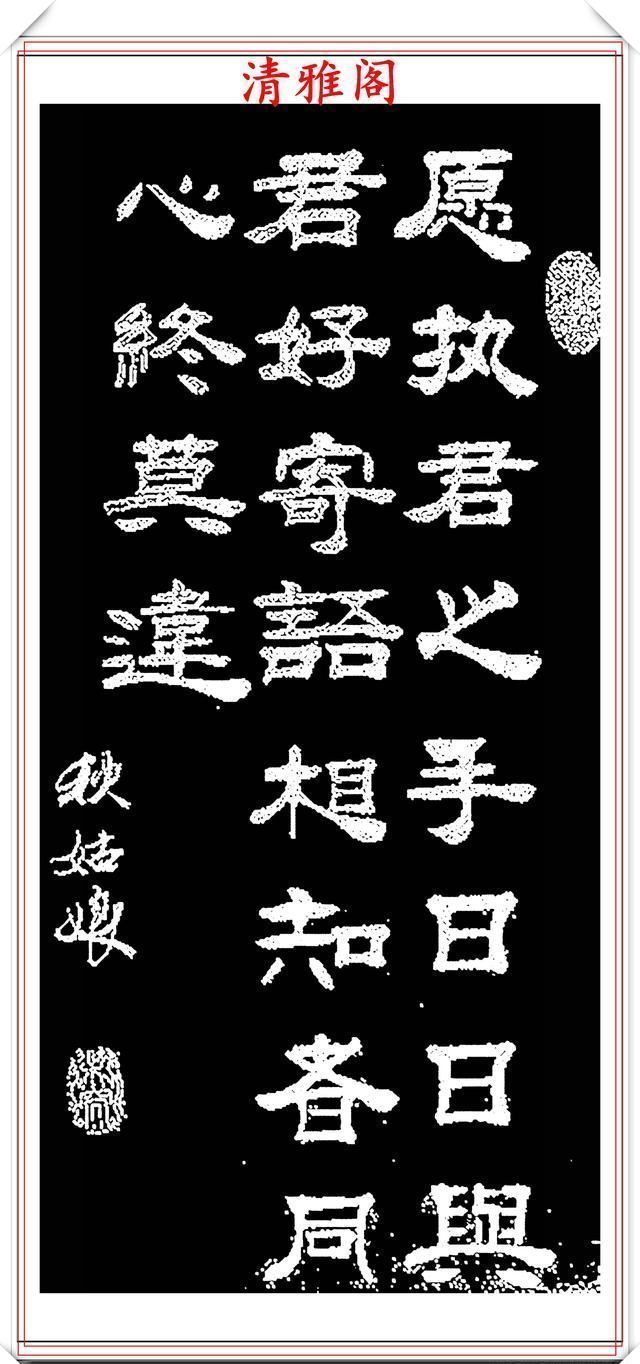 清雅阁
愿执君之手日日與
君好寄語相知者同
心終莫違
狄姑娘